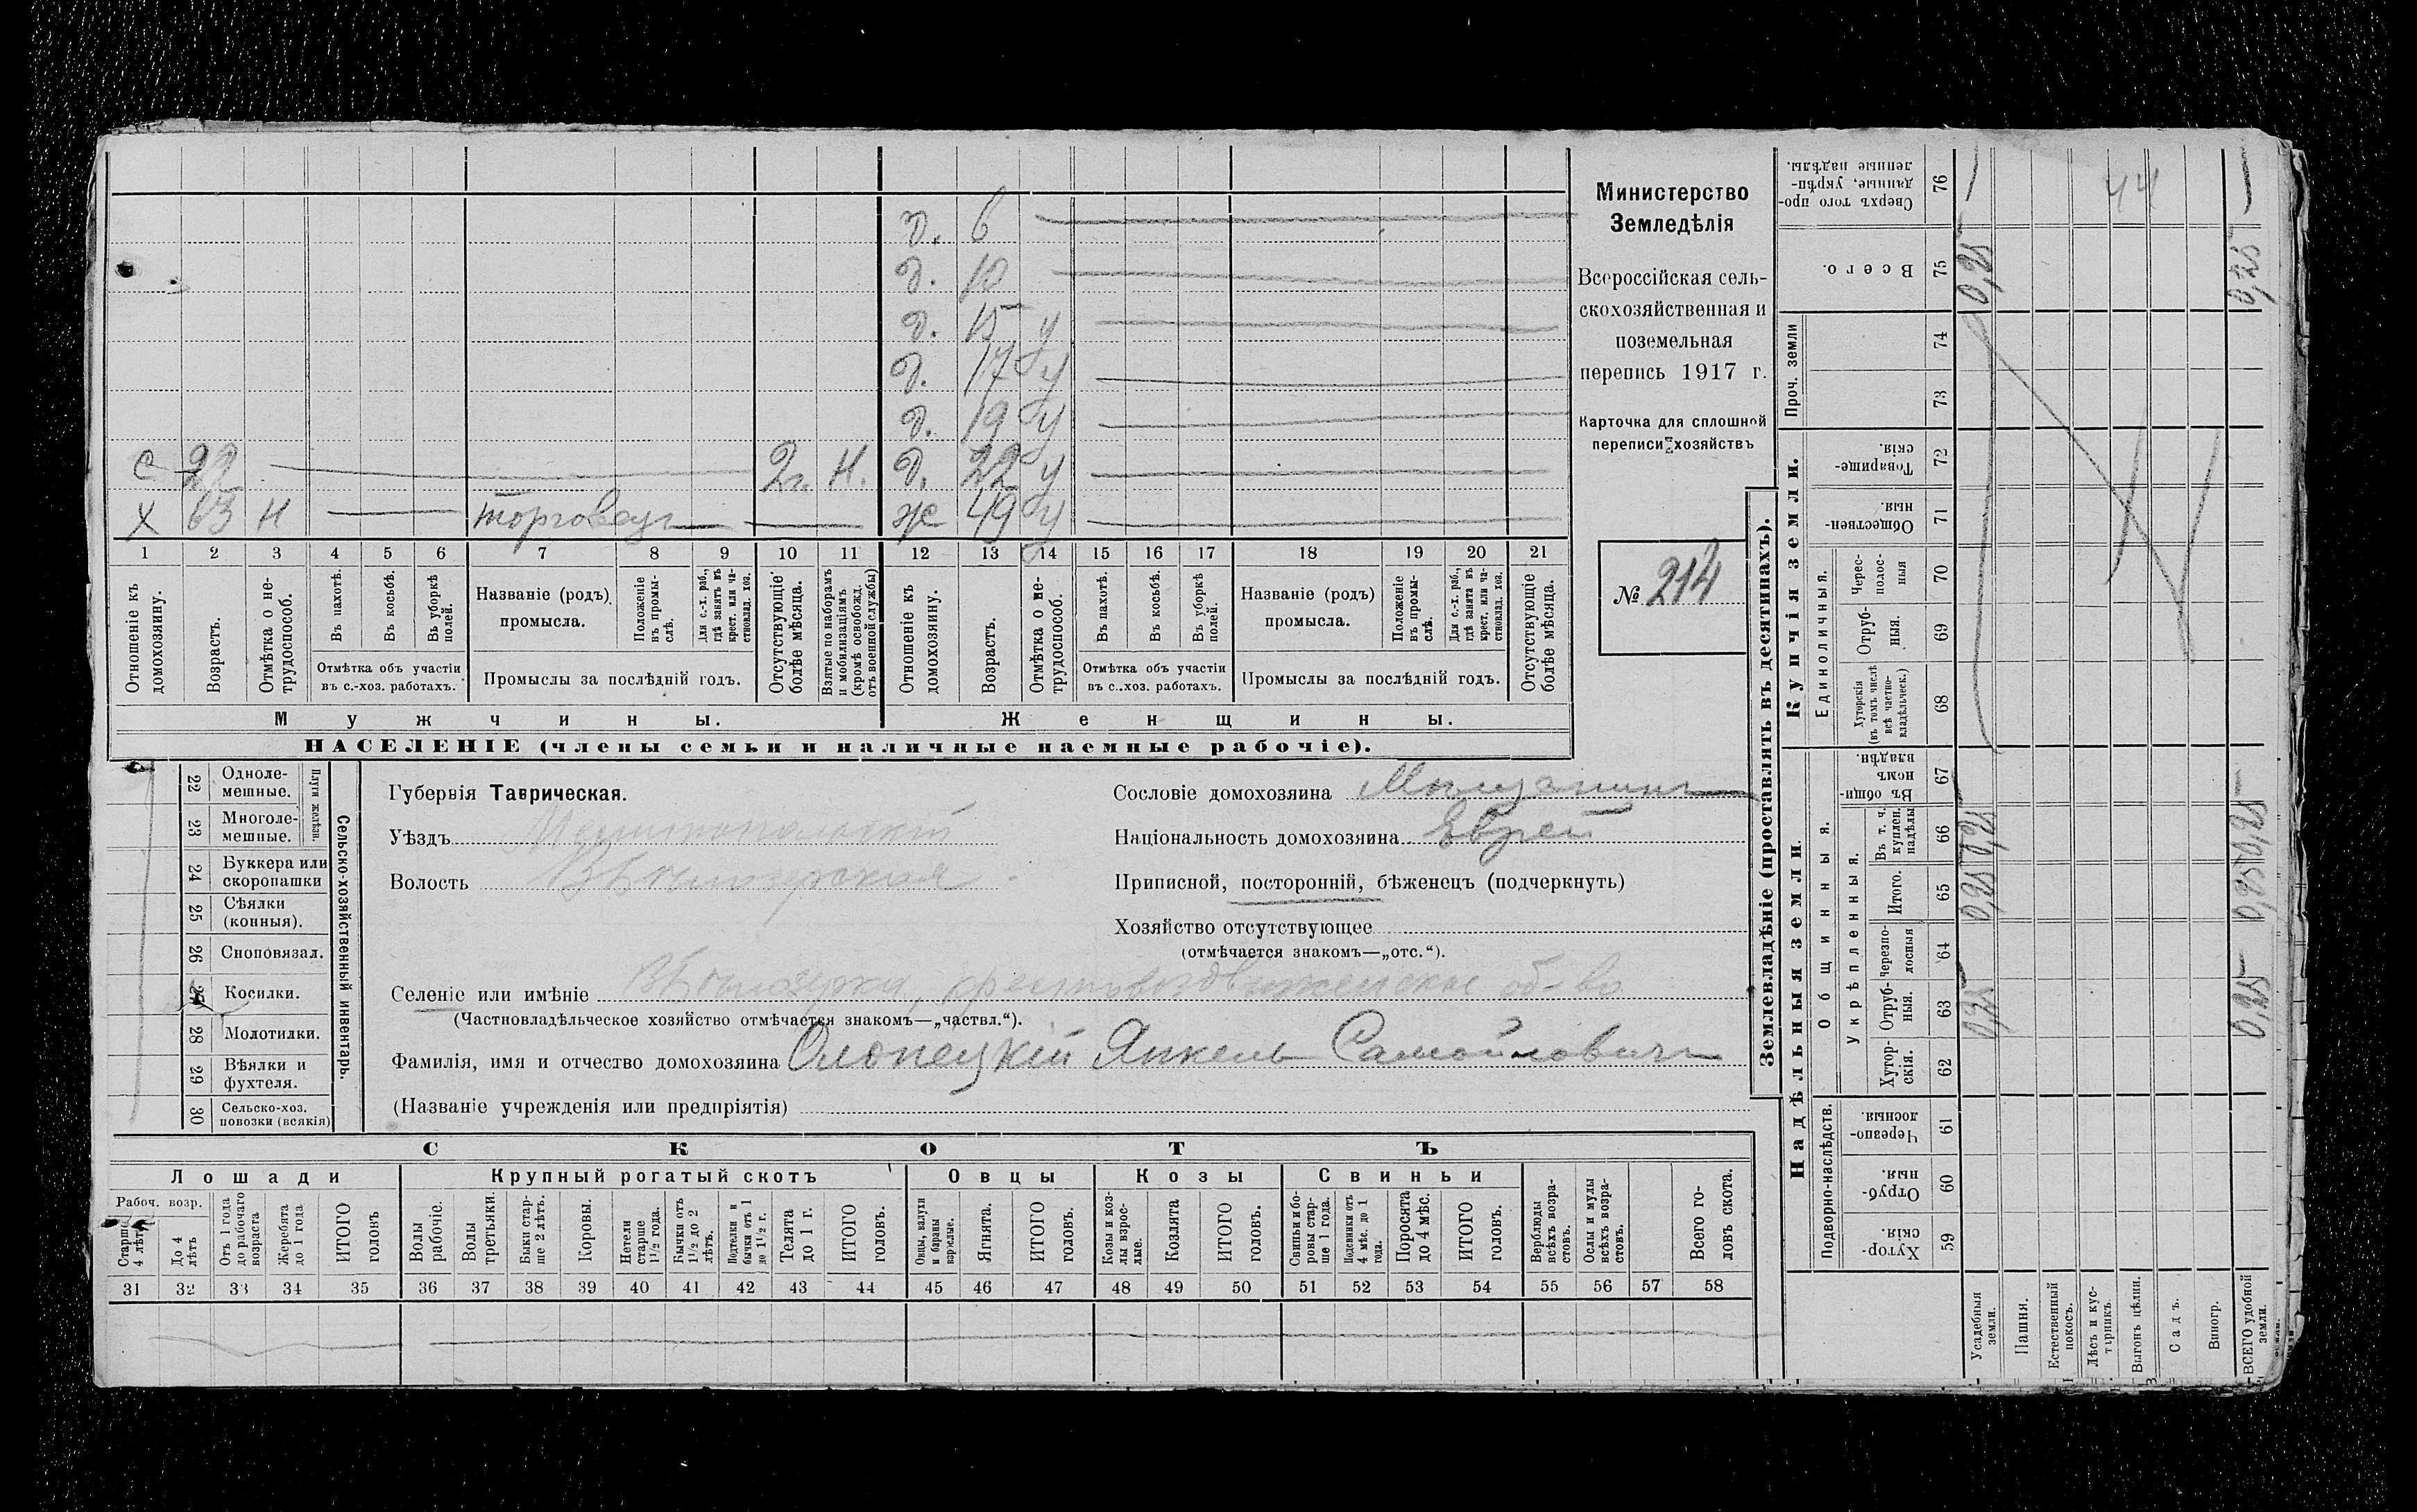 д. 6
д. 10
д. 15 у
д. 17 у
д. 19 у
с 22 2 г. н. д. 22 у
х 63 н торговецъ ж 49 у
1 2 3 4 5 6 7 8 9 10 11 12 13 14 15 16 17 18 19 20 21
Отношеніе къ домохозяину.
Возрастъ.
Отмѣтка о нетрудоспособ.
Въ пахотѣ.
Въ косьбѣ.
Въ уборкѣ полей.
Отмѣтка объ участіи
въ с.-хоз. работахъ.
Названіе (родъ)
промысла.
Положеніе въ промыслѣ.
Для с.-х. раб., гдѣ занятъ въ крест. или частновлад. хоз.
Промыслы за послѣдній годъ.
Отсутствующіе болѣе мѣсяца.
Взятые по наборамъ и мобилизаціямъ (кромѣ освобожд. отъ военной службы)
Отношеніе къ домохозяину.
Возрастъ.
Отмѣтка о нетрудоспособ.
Въ пахотѣ.
Въ косьбѣ.
Въ уборкѣ полей.
Отмѣтка объ участіи
въ с.-хоз. работахъ.
Названіе (родъ)
промысла.
Положеніе въ промыслѣ.
Для с.-х. раб., гдѣ занята въ крест. или частновлад. хоз.
Промыслы за послѣдній годъ.
Отсутствующіе болѣе мѣсяца.
Мужчины.
Женщины.
НАСЕЛЕНІЕ (члены семьи и наличные наемные рабочіе).
Министерство
Земледѣлія
Всероссійская сель-
скохозяйственная и
поземельная
перепись 1917 г.
Карточка для сплошной
переписи хозяйствъ
№ 214
22 Одноле-
мешные.
23 Многоле-
мешные.
Плуги желѣзн.
24 Буккера или
скоропашки
25 Сѣялки
(конныя).
26 Сноповязал.
27 Косилки.
28 Молотилки.
29 Вѣялки и
фухтеля.
30 Сельско-хоз.
повозки (всякія)
Сельско-хозяйственный инвентарь.
Губернія Таврическая.
Уѣздъ Мелитопольскій
Волость
Селеніе или имѣніе
(Частновладѣльческое хозяйство отмѣчается знакомъ—„частвл.“).
Фамилія, имя и отчество домохозяина Олонецкій Янкель Самойловичъ
(Названіе учрежденія или предпріятія)
Сословіе домохозяина Мѣщанинъ
Національность домохозяина Еврей
Приписной, посторонній, бѣженецъ (подчеркнуть)
Хозяйство отсутствующее
(отмѣчается знакомъ—„отс.“).
СКОТЪ
Лошади
Крупный рогатый скотъ
Овцы
Козы
Свиньи
Рабоч. возр.
Старше 4 лѣтъ
До 4 лѣтъ
Отъ 1 года до рабочаго возраста
Жеребята до 1 года
ИТОГО головъ
Волы рабочіе.
Волы третьяки.
Быки старше 2 лѣтъ.
Коровы.
Нетели старше 1½ года.
Бычки отъ 1½ до 2 лѣтъ.
Подтелки и бычки отъ 1 до 1½ г.
Телята до 1 г.
ИТОГО головъ.
Овцы, валухи и бараны взрослые.
Ягнята.
ИТОГО головъ.
Козы и козлы взрослые.
Козлята
ИТОГО головъ.
Свиньи и боровы старше 1 года.
Подсвинки отъ 4 мѣс. до 1 года.
Поросята до 4 мѣс.
ИТОГО головъ.
Верблюды всѣхъ возрастовъ.
Ослы и мулы всѣхъ возрастовъ.
Всего головъ скота.
31 32 33 34 35 36 37 38 39 40 41 42 43 44 45 46 47 48 49 50 51 52 53 54 55 56 57 58
Землевладѣніе (проставлять въ десятинахъ).
Надѣльныя земли
Купчія земли.
Проч. земли
Подворно-наслѣдств.
Общинныя.
Укрѣпленныя.
Единоличныя.
Хуторскія. 59
Отрубныя. 60
Черезполосныя 61
Хуторскія. 62
Отрубныя. 63
Черезполосныя 64
Итого. 65
Въ т. ч. куплен. надѣлы 66
Въ общинномъ владѣн. 67
Хуторскія (въ томъ числѣ всѣ частновладѣльческ.) 68
Отрубныя. 69
Черезполосныя 70
Общественныя. 71
Товарищескія. 72
73
74
Всего. 75
Сверхъ того проданные, укрѣпленные надѣлы. 76
Усадебныя земли. 0,25 0,25 0,25 0,25
Пашня.
Естественный покосъ.
Лѣсъ и кустарникъ.
Выгонъ цѣлин. 44
Садъ.
Виногр.
ВСЕГО удобной земли. 0,25 0,25 0,25 0,25